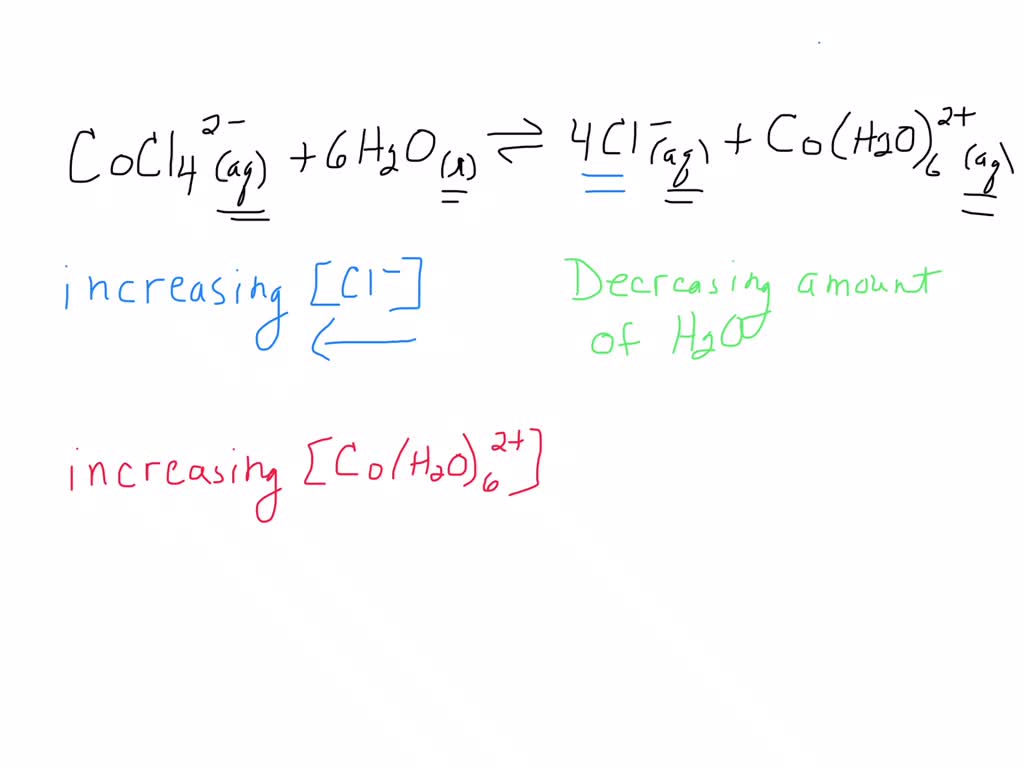 CoCl4^2-(aq) + 6H2O(l) ⇌ 4Cl^-(aq) + Co(H2O)6^2+(aq)
increasing [Cl^-]
←
Decreasing amount
of H2O
increasing [Co(H2O)6^2+]